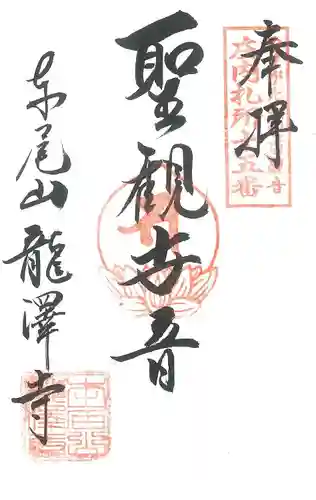 奉拝
聖観世音
東尾山龍澤寺
庄内札所
五番